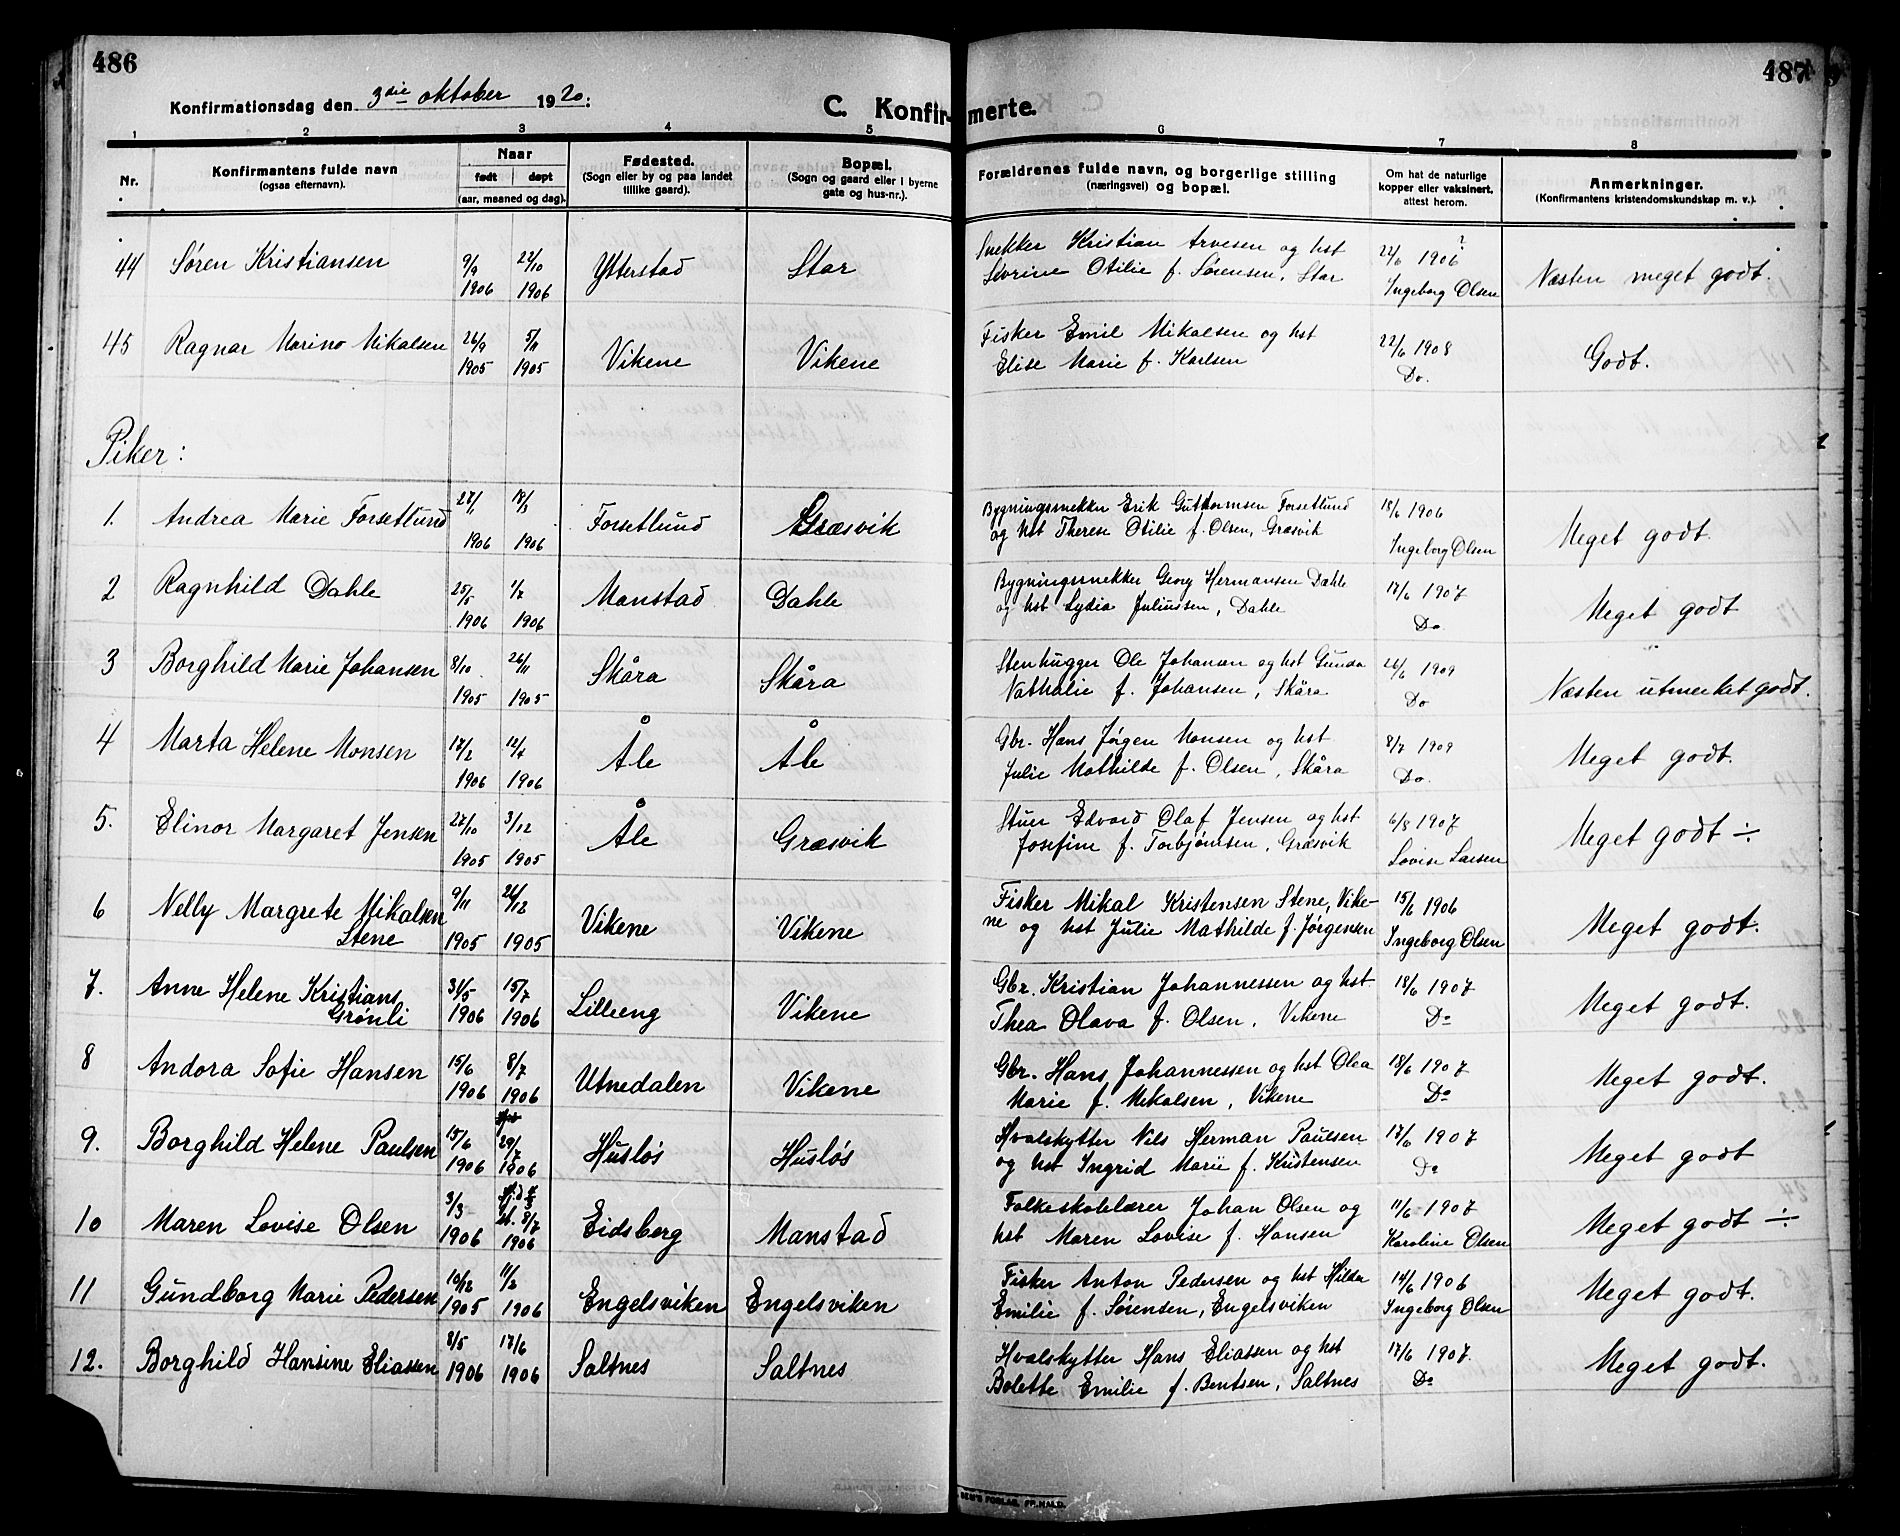 486
487
Konfirmationsdag den 3die oktober 1920.
C. Konfirmerte.
1 2 3 4 5 6 7 8
Nr.
Konfirmantens fulde navn
(ogsaa efternavn).
Naar
født døpt
(aar, maaned og dag).
Fødested.
(Sogn eller by og paa landet
tillike gaard).
Bopæl.
(Sogn og gaard eller i byerne
gate og hus-nr.).
Forældrenes fulde navn, og borgerlige stilling
(næringsvei) og bopæl.
Om hat de naturlige
kopper eller vaksinert,
attest herom.
Anmerkninger.
(Konfirmantens kristendomskundskap m. v.).
44 Søren Kristiansen 9/9 1906 22/10 1906 Ytterstad Star
Snekker Kristian Arvesen og hst
Sevrine Otilie f. Sørensen, Star
22/6 1906 ?
Ingeborg Olsen
Næsten meget godt.
45 Ragnar Marino Mikalsen 26/9 1905 5/11 1905 Vikene Vikene
Fisker Emil Mikalsen og hst
Elise Marie f. Karlsen
22/6 1908
Do.
Godt.
Piker:
1. Andrea Marie Forsetlund 27/1 1906 18/3 1906 Forsetlund Græsvik
Bygningssnekker Erik Guttormsen Forsetlund
og hst Therese Otilie f. Olsen, Græsvik
18/6 1906
Ingeborg Olsen
Meget godt.
2 Ragnhild Dahle 25/5 1906 1/7 1906 Manstad Dahle
Bygningssnekker Georg Hermansen Dahle
og hst Lydia Juliussen, Dahle
17/6 1907
Do
Meget godt
3 Borghild Marie Johansen 8/10 1905 26/11 1905 Skåra Skåra
Stenhugger Ole Johansen og hst Gunda
Nathalie f. Johansen, Skåra
26/6 1909
Do
Næsten utmerket godt.
4 Marta Helene Monsen 17/2 1906 12/4 1906 Åle Åle
Gbr. Hans Jörgen Monsen og hst
Julie Mathilde f. Olsen, Skåra
8/7 1909
Do.
Meget godt.
5. Elinor Margaret Jensen 27/10 1905 3/12 1905 Åle Græsvik
Stuer Edvard Olaf Jensen og hst
Josefine f. Torbjørnsen, Græsvik
6/8 1907
Lovise Larsen
Meget godt ÷
6 Nelly Margrete Mikalsen
Stene
9/11 1905 26/12 1905 Vikene Vikene
Fisker Mikal Kristensen Stene, Vike-
ne og hst Julie Mathilde f. Jörgensen
15/6 1906
Ingeborg Olsen
Meget godt.
7. Anne Helene Kristians
Grønli
31/5 1906 15/7 1906 Lilleeng Vikene
Gbr. Kristian Johannessen og hst
Thea Olava f. Olsen, Vikene
18/6 1907
Do
Meget godt.
8 Andora Sofie Hansen 15/6 1906 8/7 1906 Utnedalen Vikene
Gbr. Hans Johannessen og hst Olea
Marie f. Mikalsen, Vikene
18/6 1907
Do
Meget godt.
9. Borghild Helene Paulsen 15/6 1906 29/7 1906 Husløs Husløs
Hvalskytter Nils Herman Paulsen
og hst Ingrid Marie f. Kristensen
17/6 1907
Do
Meget godt
10 Maren Lovise Olsen 3/3 1906 8/7 1906 Eidsberg Manstad
Folkeskolelærer Johan Olsen og
hst Maren Lovise f. Hansen
11/6 1907
Karoline Olsen
Meget godt ÷
11 Gundborg Marie Pedersen 10/12 1905 11/2 1906 Engelsviken Engelsviken
Fisker Anton Pedersen og hst Hilda
Emilie f. Sørensen, Engelsviken
14/6 1906
Ingeborg Olsen
Meget godt.
12. Borghild Hansine Eliassen 8/5 1906 17/6 1906 Saltnes Saltnes
Hvalskytter Hans Eliassen og hst
Bolette Emilie f. Bentsen, Saltnes
17/6 1907.
Do
Meget godt.